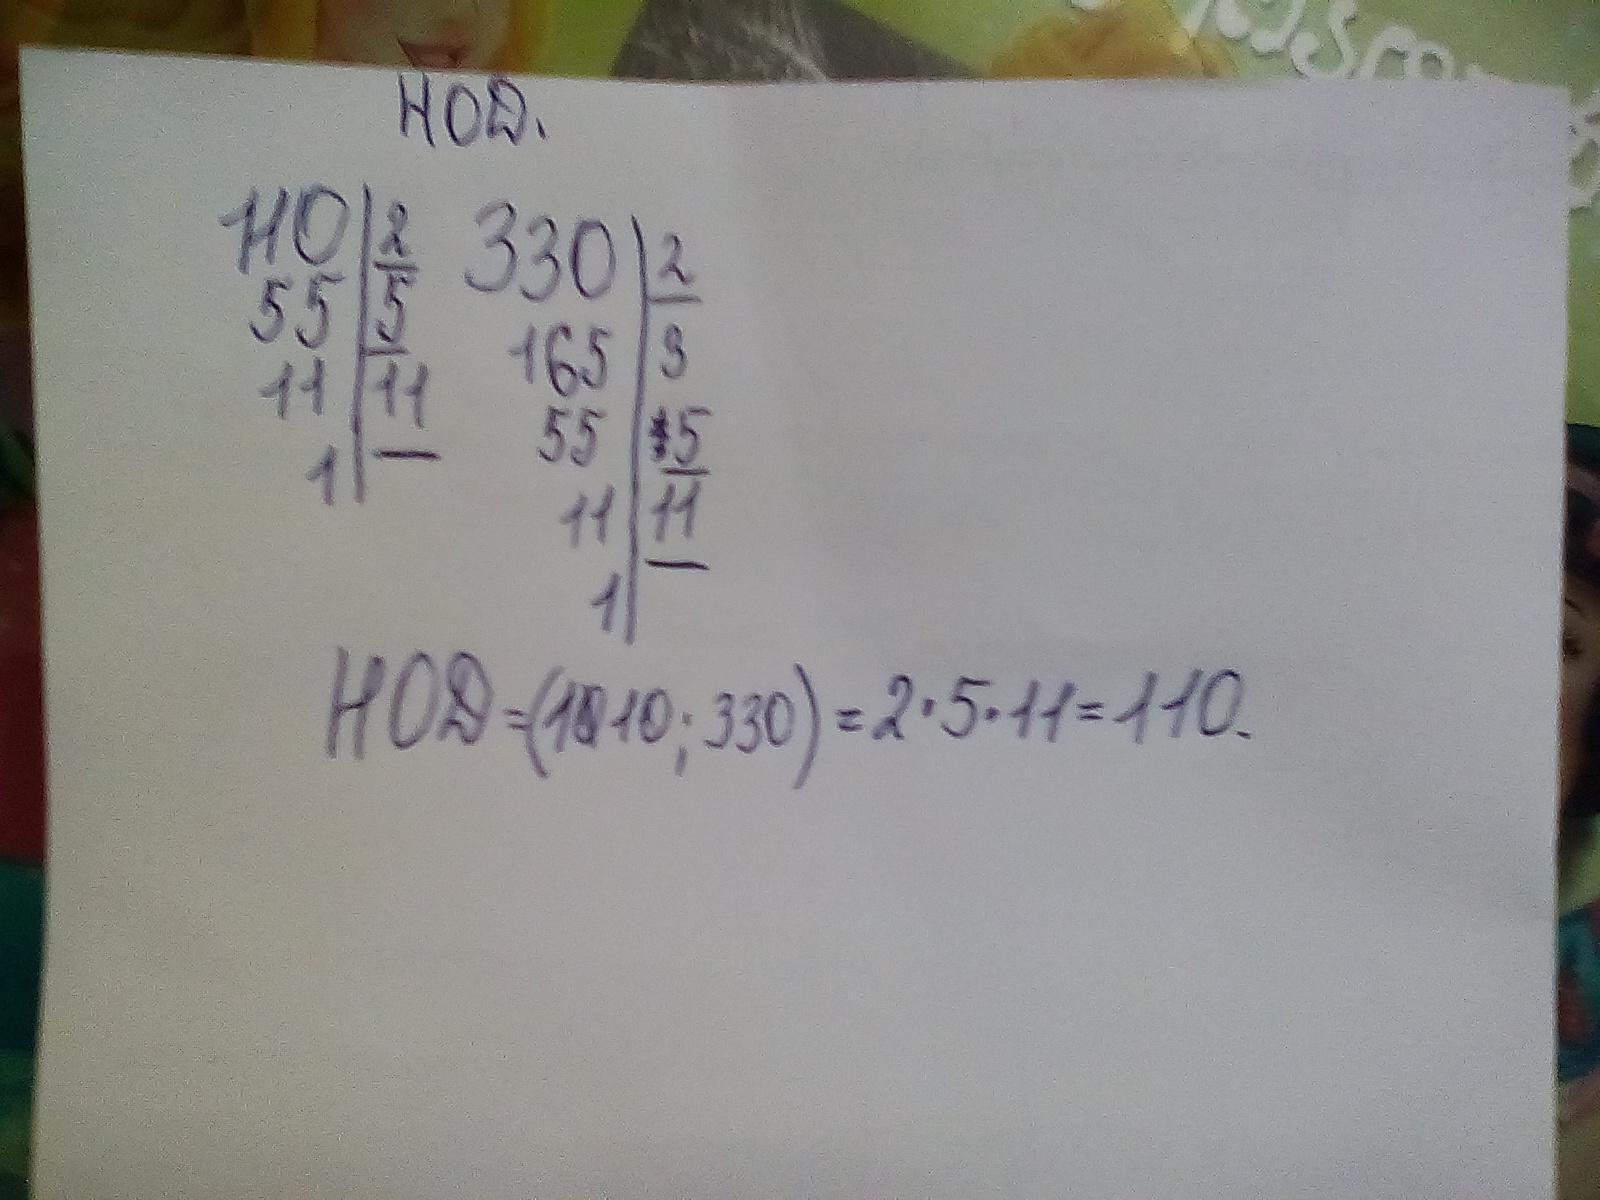 НОД.
110 | 2 330 | 2
55 | 5 165 | 3
11 | 11 55 | 5
1 | 11 | 11
1 |
НОД =(110; 330) = 2·5·11=110.